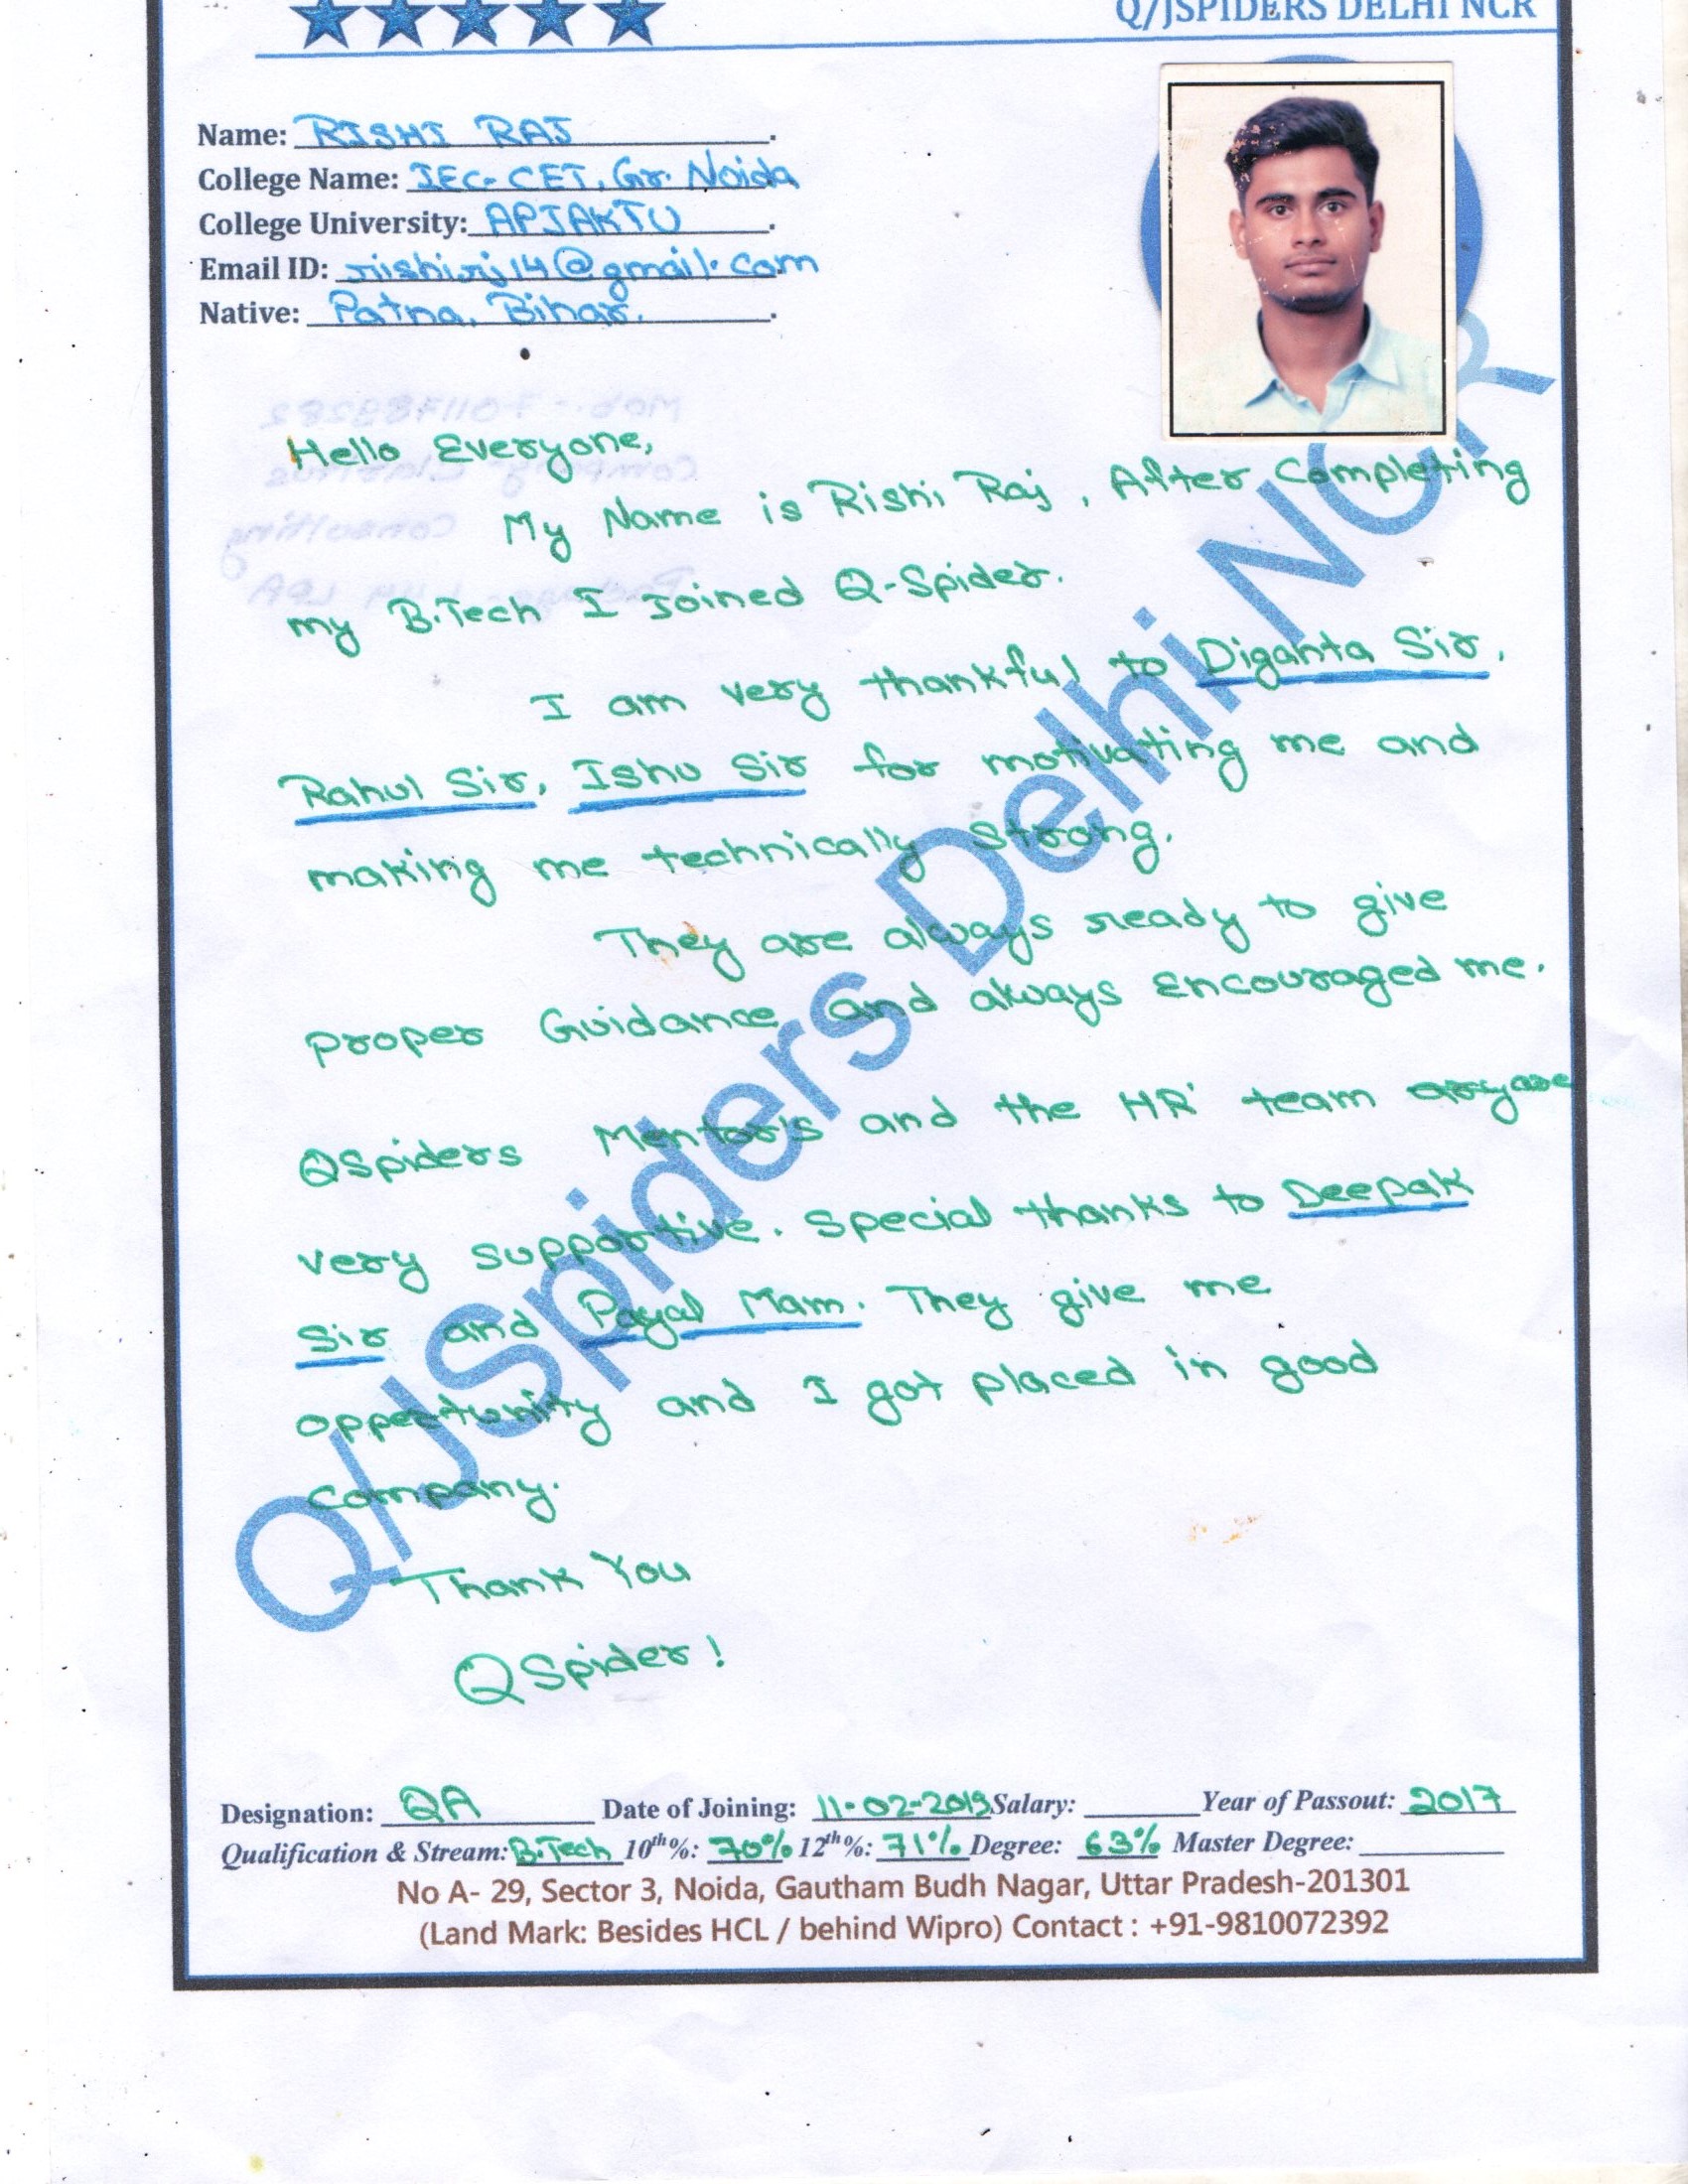 Q/JSPIDERS DELHI NCR
Name: RISHI RAJ
College Name: IEC-CET, Gr. Noida
College University: APJAKTU
Email ID: rishirj14@gmail.com
Native: Patna, Bihar.
Hello Everyone,
My Name is Rishi Raj, After Completing
my B.Tech I Joined Q-Spider.
I am very thankful to Diganta Sir,
Rahul Sir, Ishu Sir for motivating me and
making me technically strong.
They are always ready to give
proper Guidance and always encouraged me.
QSpiders Mentor's and the HR team are
very supportive. Special thanks to Deepak
Sir and Payal Mam. They give me
opportunity and I got placed in good
company.
Thank You
QSpider!
Q/JSpiders Delhi NCR
Designation: QA Date of Joining: 11-02-2019 Salary: Year of Passout: 2017
Qualification & Stream: B.Tech 10th%: 70% 12th%: 71% Degree: 63% Master Degree:
No A- 29, Sector 3, Noida, Gautham Budh Nagar, Uttar Pradesh-201301
(Land Mark: Besides HCL / behind Wipro) Contact : +91-9810072392